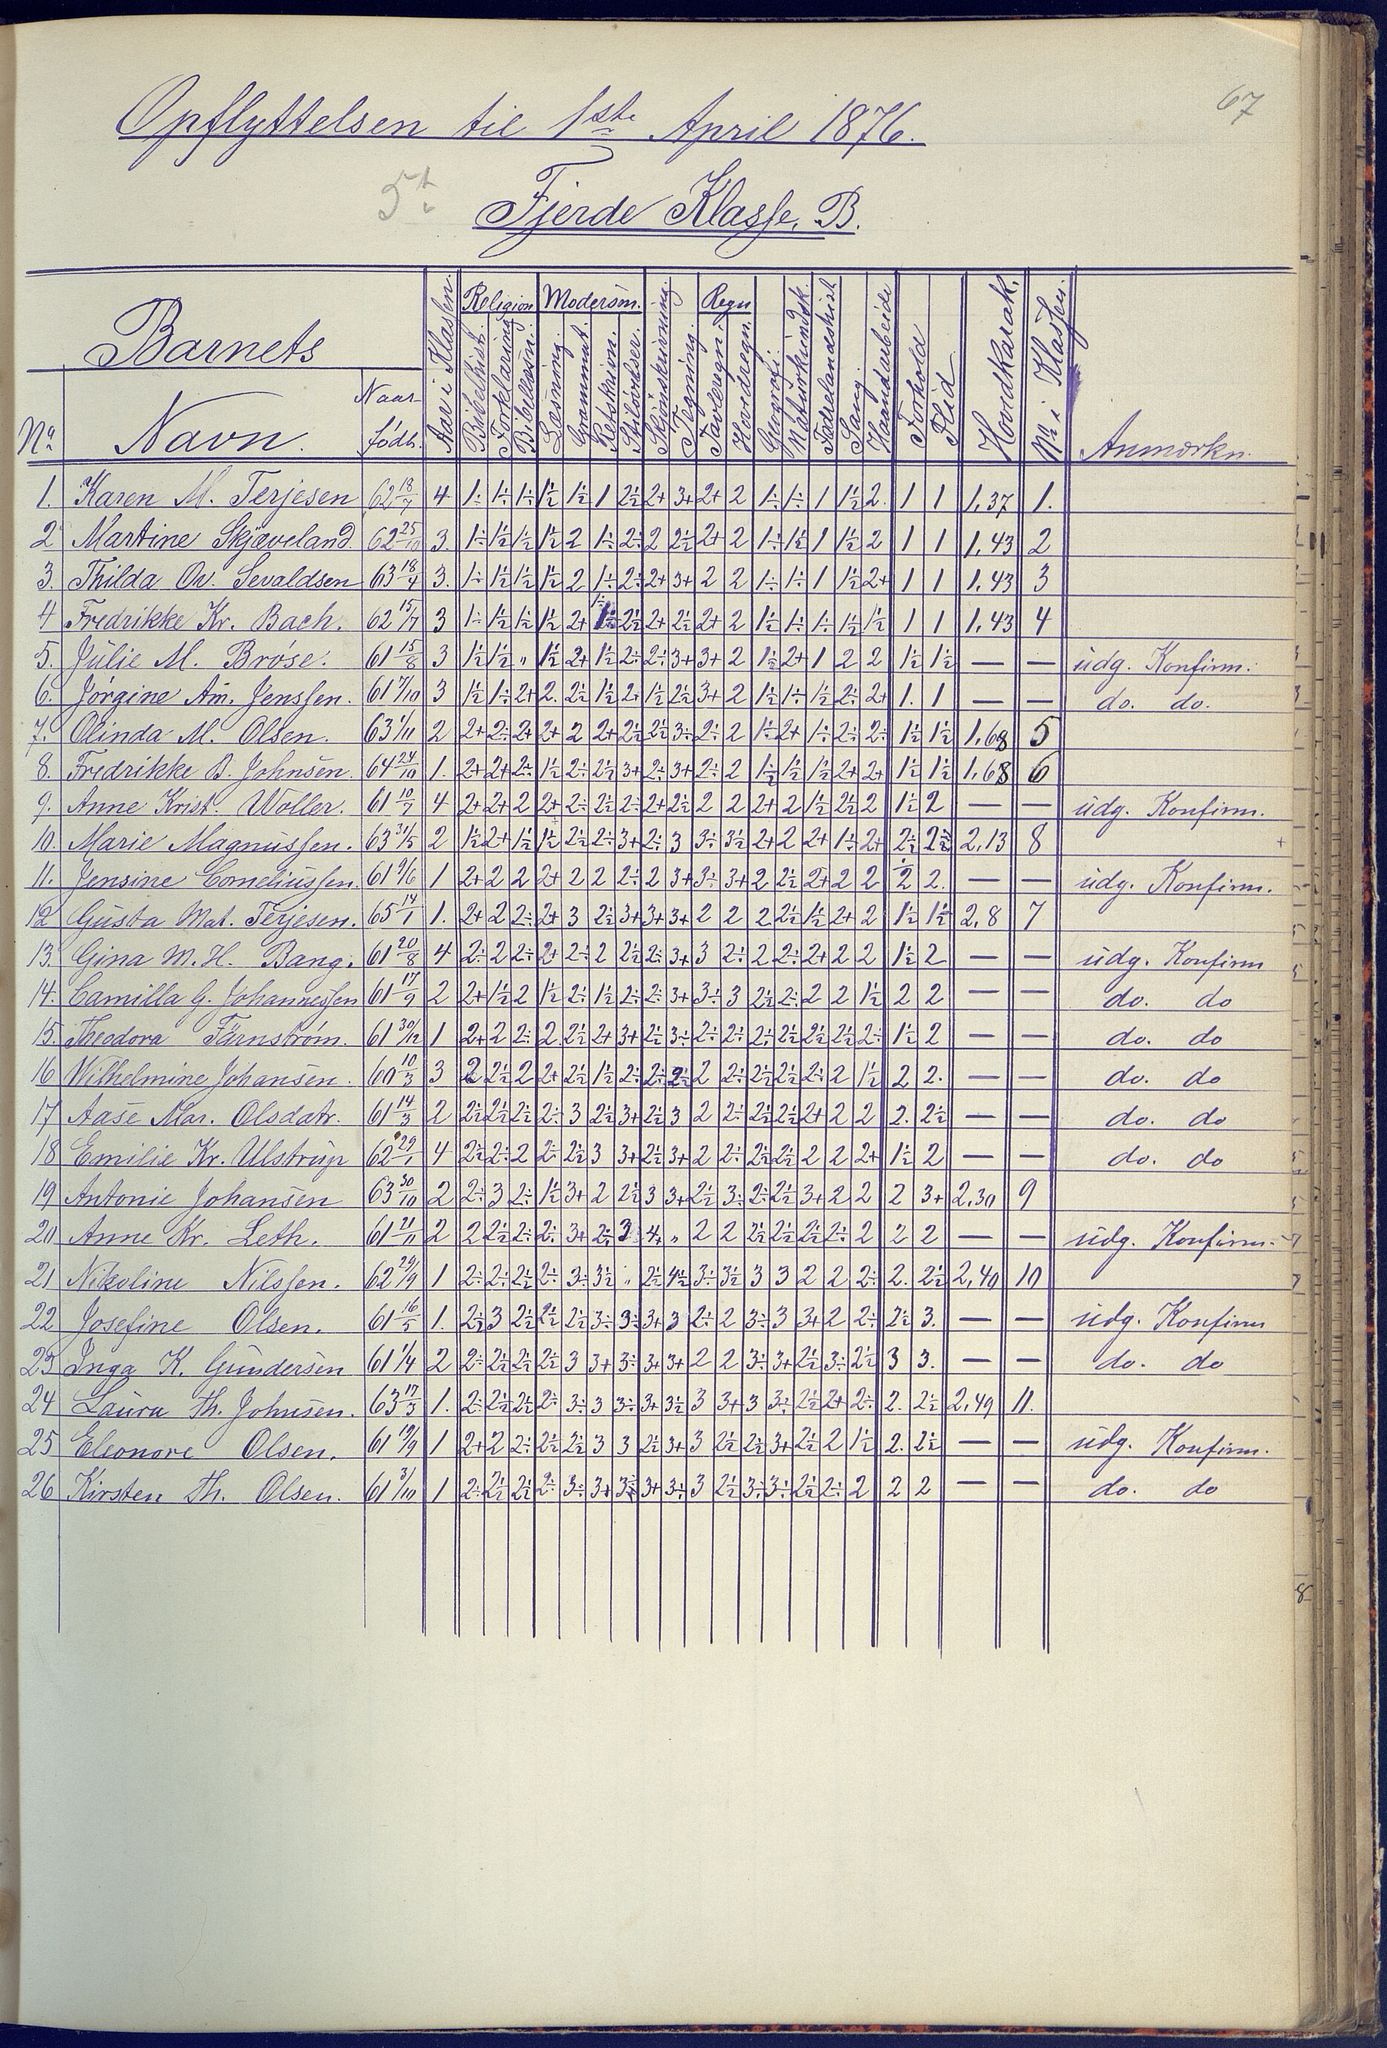 67
Opflyttelsen til 1ste April 1876.
5te
Fjerde Klasse, B.
Barnets
No Navn. Naar født. Aar i Klassen. Religion Bibelhist. Forklaring Bibellæsn. Modersm. Læsning. Grammat. Retskrivn. Stiløvelser. Skjönskrivning. Tegning. Regn Tavleregn. Hovedregn. Geografi. Naturkundsk. Fædrelandshist Sang. Haandarbeide Forhold Flid Hovedkarak. No i Klassen. Anmærkn.
1. Karen M. Terjesen 62 18/7 4 1÷ 1÷ 1÷ 1½ 1½ 1 2½ 2+ 3+ 2+ 2 1÷ 1÷ 1 1½ 2. 1 1 1,37 1.
2 Martine Skjæveland 62 25/10 3. 1÷ 1½ 1½ 1½ 2 1÷ 2÷ 2 2½ 2+ 2 1÷ 1½ 1 1½ 2 1 1 1,43 2
3. Thilda Ov. Sevaldsen 63 18/4 3. 1÷ 1½ 1½ 1½ 2 1÷ 2÷ 2+ 3+ 2 2 1÷ 1÷ 1 1½ 2+ 1 1 1,43 3
4 Fredrikke Kr. Bach. 62 15/7 3 1÷ 1½ 1½ 1½ 2+ 1÷ 2½ 2+ 2½ 2+ 2 1½ 1÷ 1÷ 1½ 1½ 1 1 1,43 4
5. Julie M. Brøse. 61 15/8 3 1½ 1½ " 1½ 2+ 1½ 2÷ 2÷ 3+ 3+ 2 1½ 2+ 1 2 2 1½ 1½ — — udg. Konfirm.
6. Jørgine Am. Jenssen. 61 7/10 3 1½ 1÷ 2+ 2. 2½ 1½ 2+ 1½ 2½ 3+ 2 1½ 1÷ 1½ 2÷ 2+ 1. 1 — — do. do.
7. Olinda M. Olsen. 63 1/11 2 2+ 2÷ 2+ 2+ 2 2+ 2½ 2½ 3÷ 2÷ 2 1÷ 2+ 1÷ 2÷ 2÷ 1½ 1½ 1,68 5
8. Fredrikke B. Johnsen. 64 24/10 1. 2+ 2+ 2÷ 1½ 2÷ 2½ 3+ 2÷ 3+ 2÷ 2 1½ 1½ 1½ 2+ 2+ 1½ 1½ 1,68 6
9. Anne Krist. Woller. 61 10/7 4 2+ 2+ 2 2+ 2÷ 2½ 2÷ 2+ 2½ 2 2 2+ 2 1½ 2½ 2 1½ 2 — — udg. Konfirm.
10. Marie Magnussen. 63 31/5 2 1½ 2+ 1½ 1½ 2½ 2÷ 3+ 2÷ 3 3÷ 3½ 2+ 2 2+ 1÷ 2+ 2÷ 2½ 2,13 8
11. Jensine Corneliussen. 61 9/6 1 2+ 2 2 2+ 2 2 2÷ 2 3+ 3÷ 3+ 2 2½ 2+ 2 2 2 2. — — udg. Konfirm.
12 Gusta Mat. Terjesen. 65 14/1 1. 2+ 2 2÷ 2+ 3 2½ 3+ 3+ 3+ 2 2 2 2½ 1½ 2+ 2 1½ 1½ 2,8 7
13. Gina M. H. Bang. 61 20/8 4 2÷ 2 2÷ 2+ 2÷ 2 2½ 2÷ 3+ 3 2÷ 2 2÷ 2+ 2 2 1½ 2 — — udg. Konfirm
14. Camilla G. Johannessen 61 17/9 2 2+ 1½ 2 1½ 2÷ 1½ 2÷ 2÷ 3+ 3÷ 3 2½ 2÷ 2 2 1½ 2 2 — — do. do
15. Theodora Färnström. 61 30/12 1 2+ 2 2÷ 2 2½ 2+ 3+ 2½ 3÷ 2÷ 2÷ 2÷ 2½ 2½ 2½ 2÷ 1½ 2 — — do. do
16 Wilhelmine Johansen. 60 10/3 3 2 2½ 2 2+ 2½ 1½ 2÷ 2÷ 2½ 2 2÷ 2½ 2½ 2÷ 2 1½ 2 2. — — do. do
17 Aase Mar. Olsdatr. 61 14/3 2 2½ 2½ 2½ 2÷ 3 2½ 3+ 2½ 3 2 2÷ 2½ 2½ 2+ 2 2 2. 2½ — — do. do
18 Emilie Kr. Ulstrup 62 29/1 4 2½ 2÷ 2 2÷ 2½ 3 3+ 2½ 3+ 2 2÷ 2½ 2½ 2 2 2+ 1½ 2 — — do. do
19 Antonie Johansen 63 30/10 2 2÷ 3 2÷ 1½ 3+ 2 2½ 3 3+ 2½ 3÷ 2÷ 2½ 3+ 2 2 2 3+ 2,30 9
20 Anne Kr. Leth. 61 21/11 2 2 2½ 2÷ 2÷ 3+ 2÷ 3 4+ " 2 2 2½ 2½ 2½ 2÷ 2 2 2 — — udg. Konfirm.
21 Nikoline Nilssen. 62 29/9 1 2÷ 2÷ 2½ 2÷ 3÷ 3½ " 2½ 4½ 3÷ 3½ 3 3 2 2 2÷ 2. 2½ 2,40 10
22 Josefine Olsen. 61 16/5 1. 2½ 3 2½ 2½ 2½ 3÷ 3÷ 3+ 3 2÷ 2 3÷ 3 3+ 2 2÷ 2½ 3. — — udg. Konfirm
23 Inga K. Gundersen 61 1/4 2 2÷ 2½ 2½ 2½ 3 3+ 3÷ 3+ 3+ 2 2 3÷ 3+ 2½ 3÷ 2½ 3 3. — — do. do
24 Laura Th. Johnsen. 63 17/3 1. 2÷ 2½ 2½ 2÷ 3÷ 3 3÷ 3+ 3½ 3 3+ 3 3÷ 2½ 2+ 2÷ 2. 2½ 2,49 11.
25 Eleonore Olsen. 61 19/9 1 2+ 2 2÷ 2½ 2½ 3 3 2½ 3+ 3 2½ 2½ 3+ 2½ 2 1½ 2. 2½ — — udg. Konfirm.
26 Kirsten Th. Olsen. 61 3/10 1 2÷ 2½ 2½ 2÷ 3÷ 3+ 3½ 3+ 3÷ 3 2½ 3÷ 3÷ 2½ 2÷ 2 2 2 — — do. do